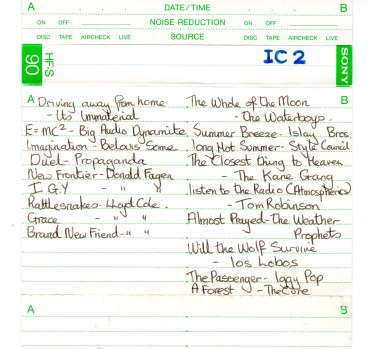 A DATE/TIME B
ON OFF NOISE REDUCTION ON OFF
DISC TAPE AIRCHECK LIVE SOURCE DISC TAPE AIRCHECK LIVE
90 HF-S
IC 2
SONY
A
Driving away from home
- Its Immaterial
E=MC² - Big Audio Dynamite.
Imagination - Belouis Some
Duel - Propaganda
New Frontier - Donald Fagen
I.G.Y. - " "
Rattlesnakes - Lloyd Cole.
Grace - " "
Brand New Friend - " "
B
The Whole of the Moon
- The Waterboys.
Summer Breeze - Islay Bros.
long Hot Summer - Style Council
The Closest thing to Heaven
- The Kane Gang
listen to the Radio (Atmospherics)
- Tom Robinson
Almost Prayed - The Weather
Prophets
Will the Wolf Survive
- los Lobos
The Passenger - Iggy Pop
A Forest - The Cure
A B